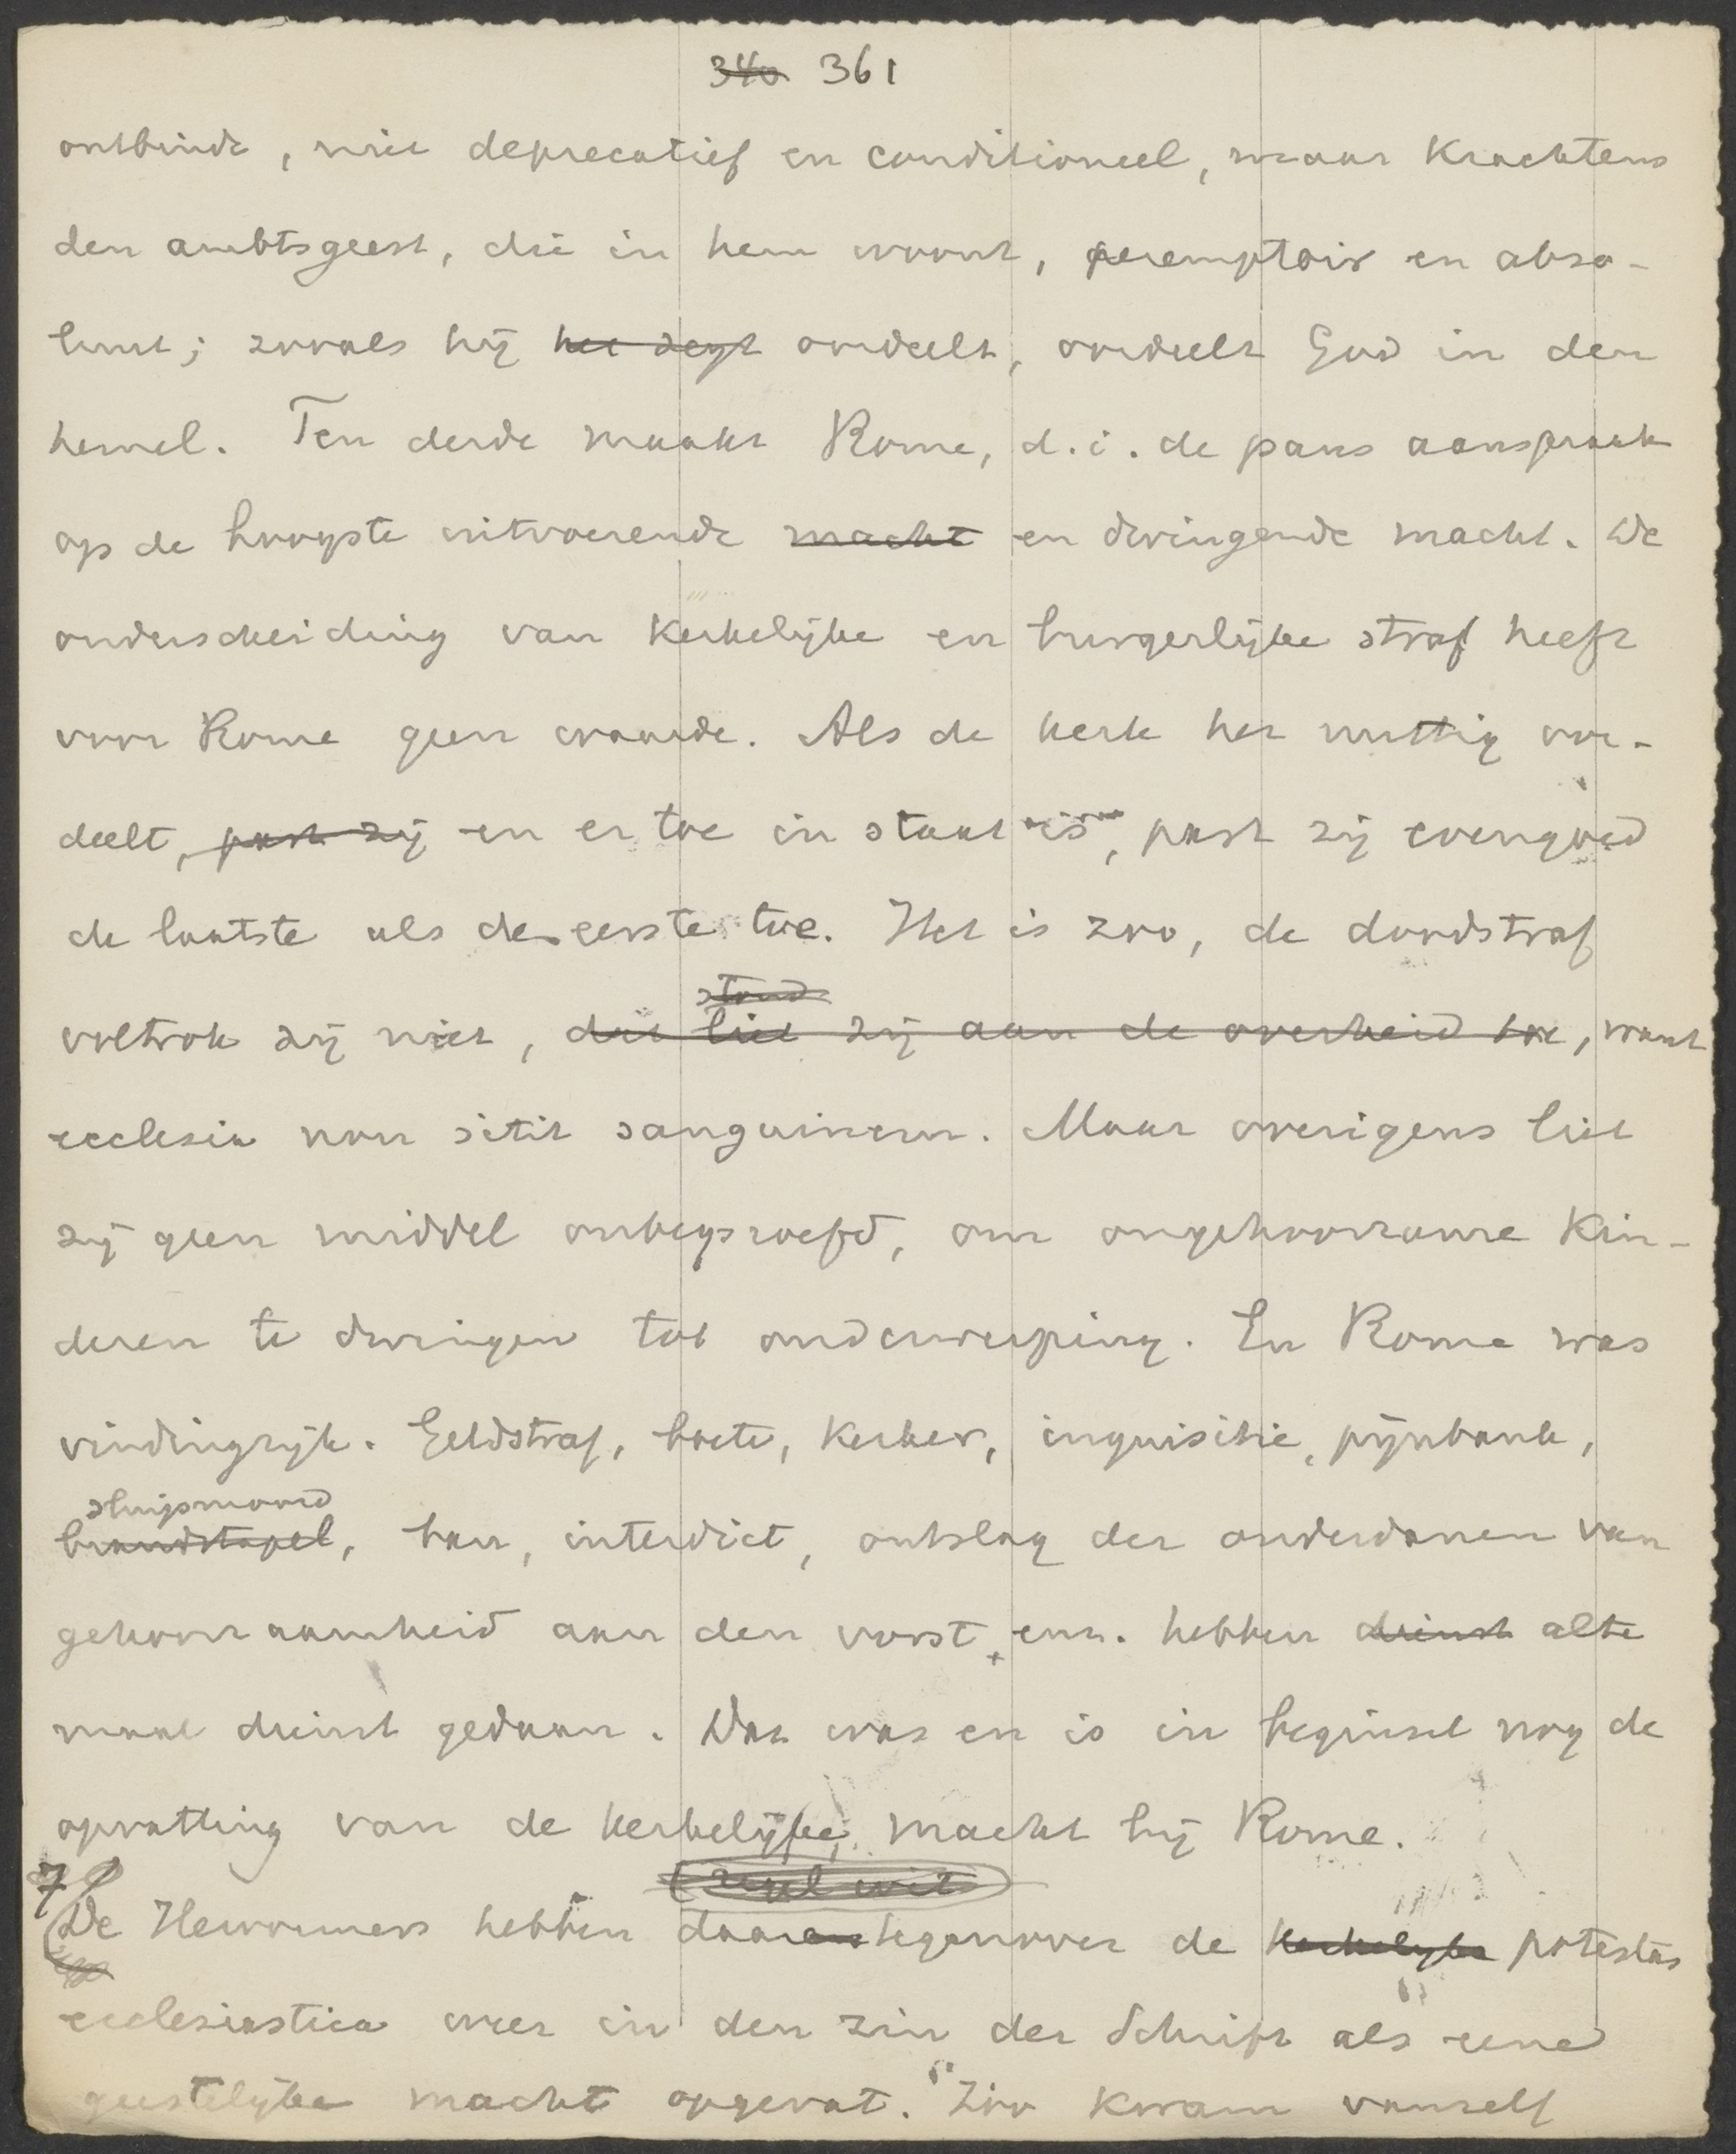 340 361
ontbinde, niet deprecatief en conditioneel, maar krachtens
den ambtsgeest, die in hem woont, peremptoir en abso-
luut; zooals hij het zegt oordeelt, oordeelt God in den
hemel. Ten derde maakt Rome, d.i. de paus aanspraak
op de hoogste uitvoerende macht en dwingende macht. De
onderscheiding van kerkelijke en burgerlijke straf heeft
voor Rome geen waarde. Als de kerk het nuttig oor-
deelt, past zij en er toe in staat is, past zij evengoed
de laatste als de eerste toe. Het is zoo, de doodstraf
stond
voltrok zij niet, dit liet zij aan de overheid toe, want
ecclesia non sitit sanguinem. Maar overigens liet
zij geen middel onbeproefd, om ongehoorzame kin-
deren te dwingen tot onderwerping. En Rome was
vindingrijk. Geldstraf, boete, kerker, inquisitie, pijnbank,
sluipmoord
brandstapel, ban, interdict, ontslag der onderdanen van
gehoorzaamheid aan den vorst, enz. hebben dienst alte
maal dienst gedaan. Dat was en is in beginsel nog de
opvatting van de kerkelijke macht bij Rome.
(regel wit)
7
De Hervormers hebben daarentegenover de kerkelijke potestas
ecclesiastica weer in den zin der Schrift als eene
geestelijke macht opgevat. Zoo kwam vanzelf